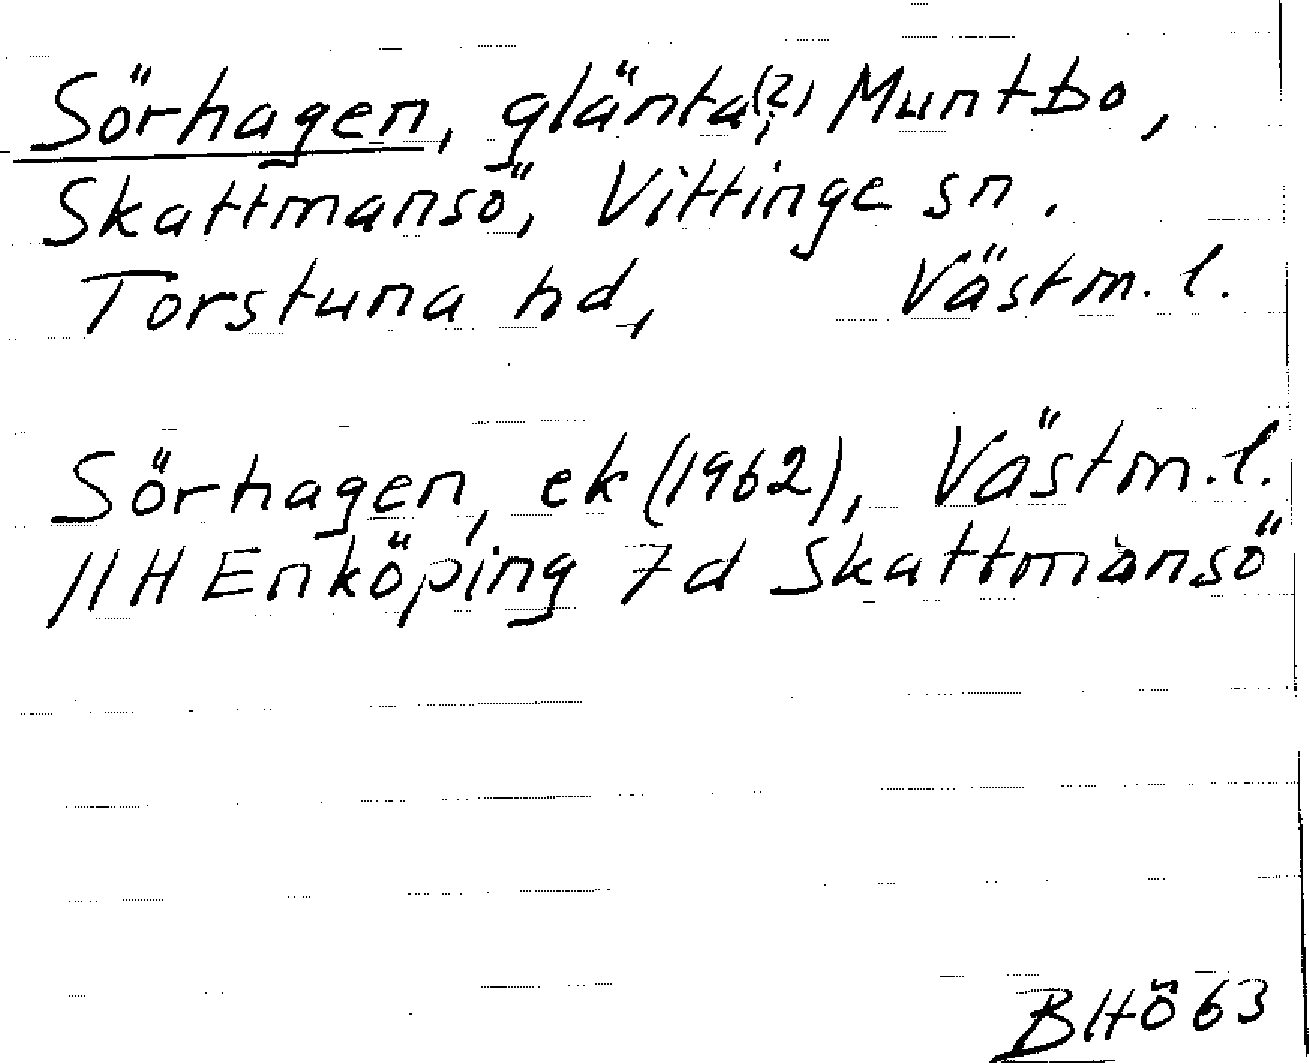 Sörhagen, glänta(?), Muntbo,
Skattmansö, Vittinge sn.
Torstuna hd, Västm. l.
Sörhagen, ek (1962), Västm. l.
11H Enköping 7d Skattmansö
BHÖ 63